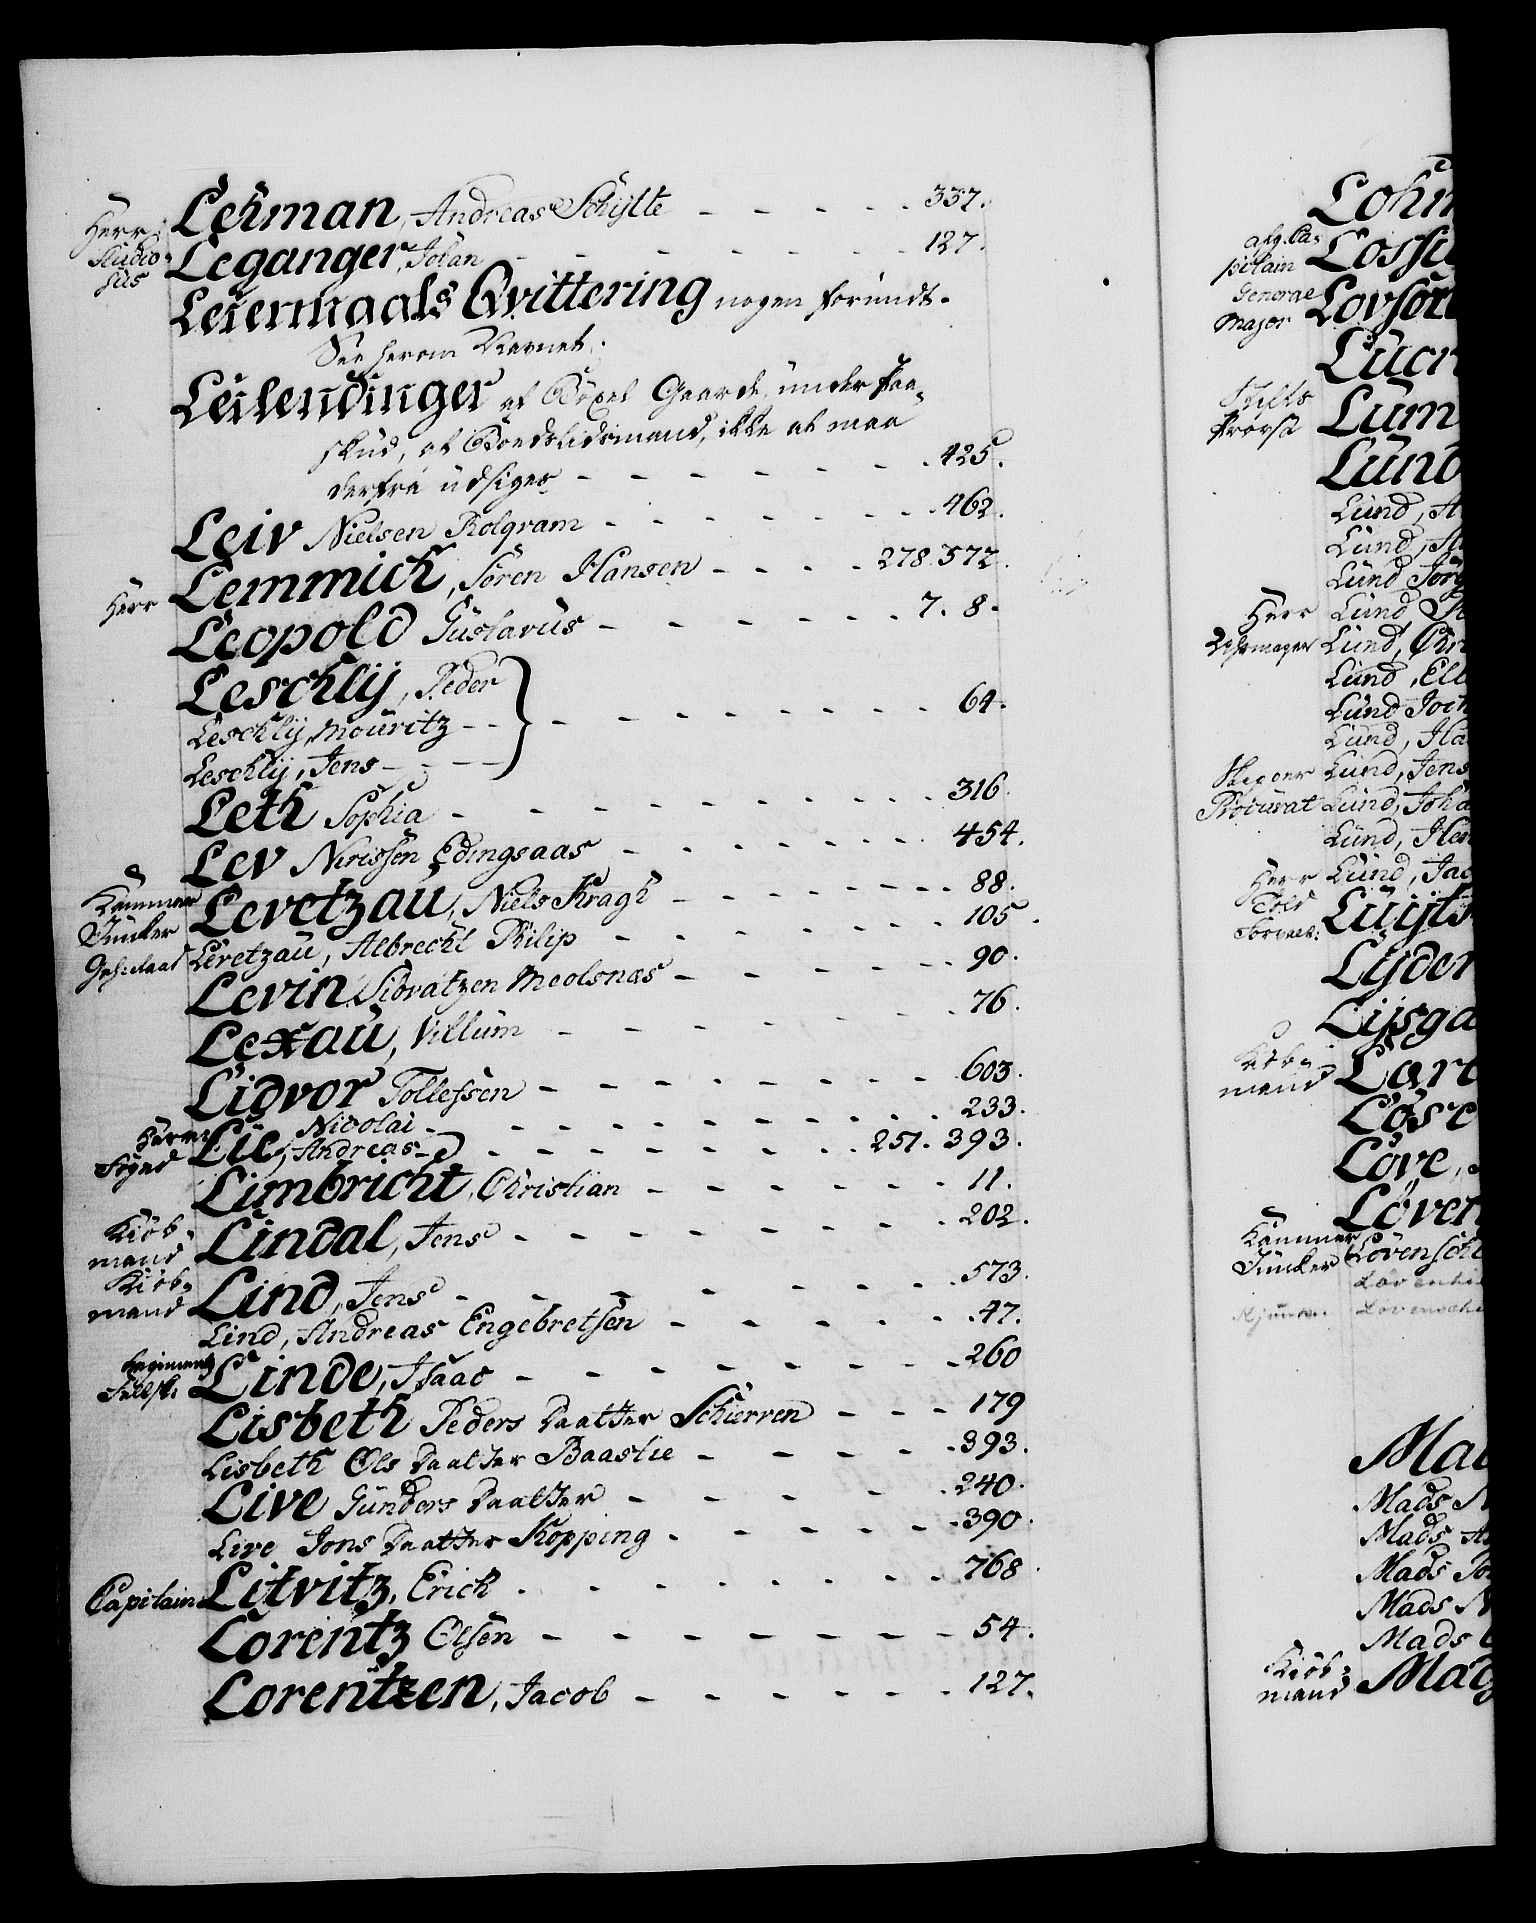 Herr Lehman, Andreas Schytte - - - - - 337.
Studio-
sus Leganger, Johan - - - - - - - 127.
Leiermaals Qvittering nogen forundt.
See herom Navnet.
Leilendinger af Böxel Gaarde, under Paa-
skud, at Boedslidsmand, ikke at maa
derfra udsiges - - - - - - - 425.
Leiv Nielsen Rolgram - - - - - - 462.
Herr Lemmich, Sören Hansen - - - - 278. 572.
Leopold Gustavus - - - - - - 7. 8.
Leschlÿ, Peder
Leschlÿ, Mouritz - - } - - - - - - - - 64.
Leschlÿ, Jens - - - -
Leth Sophia - - - - - - - - - 316.
Lev Nirissen Edingsaas - - - - - - - 454.
Kammer
Juncker Levetzau, Niels Kragh - - - - - - 88.
Levetzau, Albrecht Philip - - - - - - - 105.
Levin Sivratzen Meolsnæs - - - - - - 90.
Lexau, Villum - - - - - - - 76.
Lidvor Tollefsen - - - - - - - - 603.
Herr Nicolai - - - - - - - - - 233.
Foged Lie, Andreas - - - - - - - - 251. 393.
Limbricht, Christian - - - - - - 11.
Kiöb-
mand Lindal, Jens - - - - - - - - 202.
Kiöb-
mand Lind, Jens - - - - - - - 573.
Lind, Andreas Engebretsen - - - - - - 47.
Regiments
Feldsk: Linde, Isaac - - - - - - - - 260
Lisbeth Peders Daatter Schierven - - - 179
Lisbeth Ols Daatter Baastie - - - - - 393.
Live Gunders Daatter - - - - - 240.
Live Jons Daatter Kopping - - - - - - 390.
Capitain Litvitz, Erich - - - - - - - 768
Lorentz Olsen - - - - - - - - 54.
Lorentzen, Jacob - - - - - - - 127.
Lohm
afg. Ca-
pitain Lossi
General
Major Lovsön
Luch
Stifts
Provst Lum
Lund
Lund, A
Lund,
Lund Jörg
Herr Lund
Uhrmager Lund, Chr
Lund, Ell
Lund Joch
Lund, Ha
Skipper Lund, Jens
Procurat Lund, Joha
Lund, Hen
Herr Lund, Jac
Told
Luÿts
Lÿder
Lÿsga
Kiöb-
mand Lart
Löse
Löve,
Löven
Kammer
Juncker Lövensch
Lövenski
Kjunker Lövensch
Mad
Mads N
Mads An
Mads
Mads N
Mads
Kiöb-
mand Mag